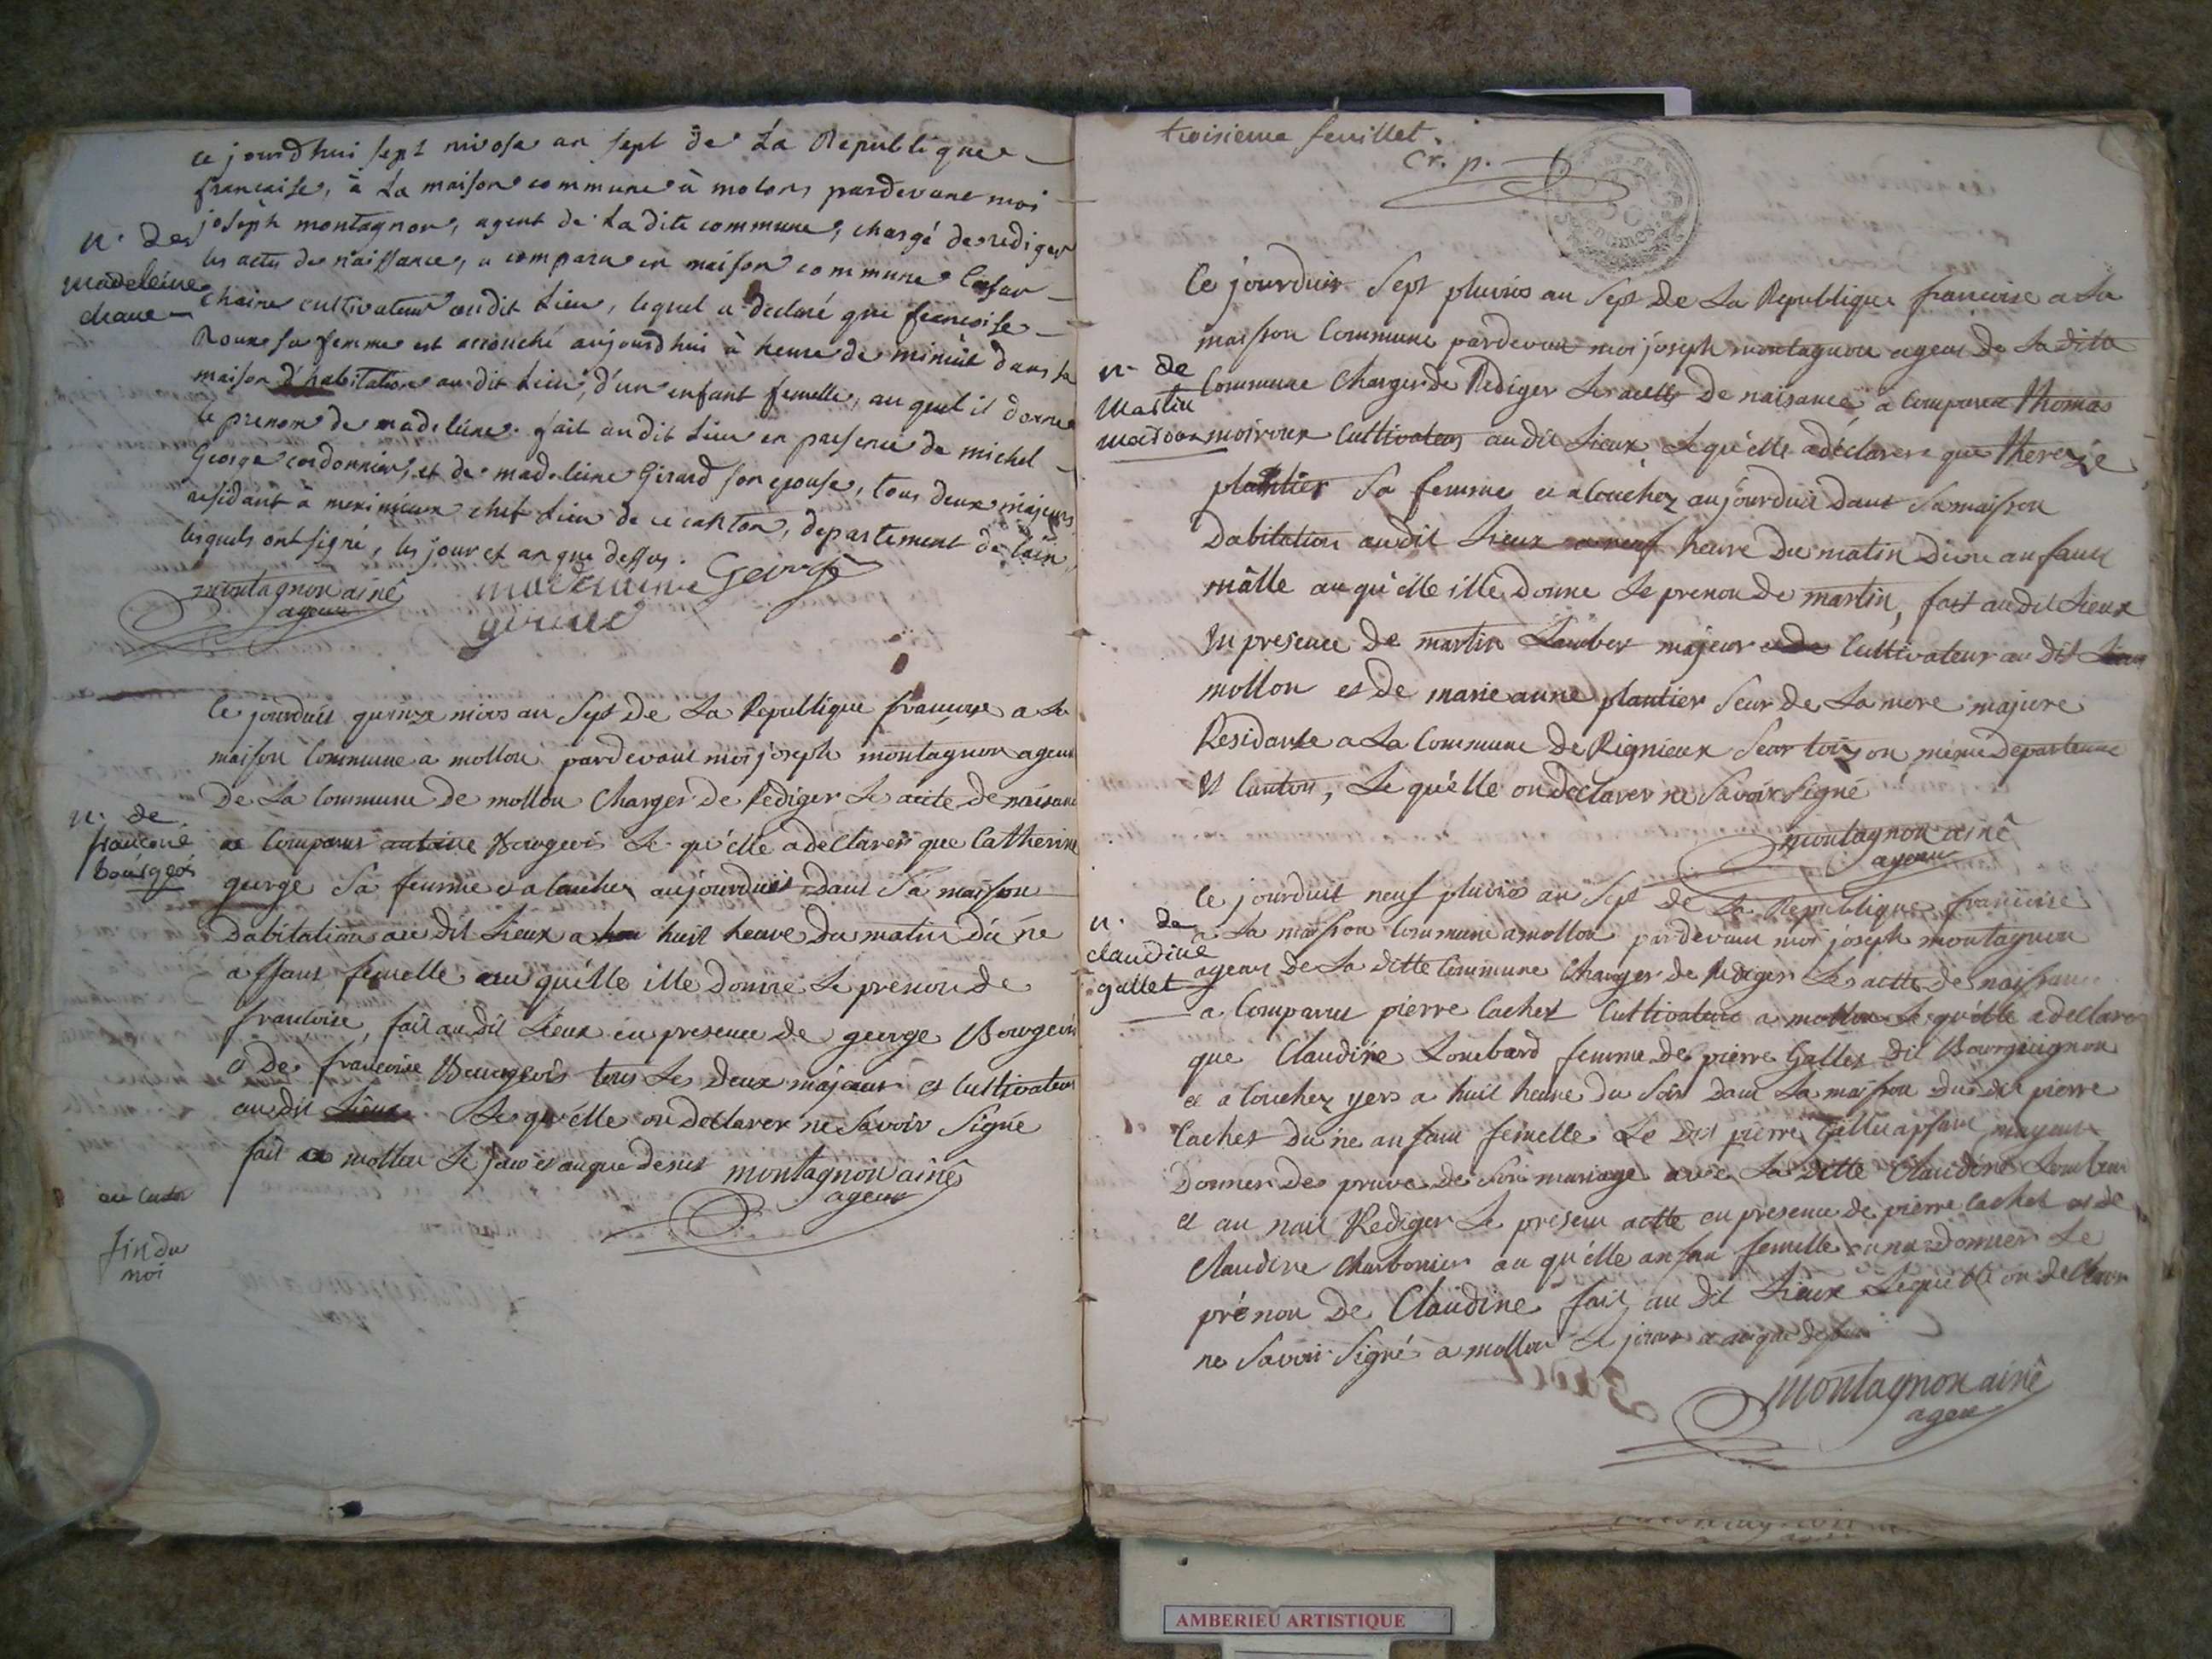 ce jourdhui sept nivose an sept de La Republique
francaise, à La maison commune à molon, pardevant moi
joseph montagnon, agent de La dite commune, chargé de rediger
les actes de naissance, a comparu en maison commune
chaine cultivateur au dit Lieu, lequel a declaré que francoise
Roux sa femme est accouché aujourdhui à heure de minuit dans sa
maison d'habitation au dit Lieu, d'un enfant femelle, au quel il donne
le prenom de madeleine. fait au dit Lieu en presence de michel
George cordonnier, et de madeleine Girard son epouse, tous deux majeurs
residant à meximieux chef Lieu de ce canton, departement de Lain,
lesquels ont signé, les jour et an que dessus.
montagnon ainé George
agent
n. de
madeleine
Ce jourduit quinze nivos an Sept de La Republique francoise a La
maison Commune a mollon pardevant moi joseph montagnon agent
De La Commune de mollon Charger de Rediger Le actte de naisance
a Comparus antoine Bourgeois Le qu'elle a declarer que Catherine
george Sa femme et a Coucher aujourduit dans Sa maison
Dabitation au dit Lieux a huit heure Du matin Du ne
anffant femelle au qu'elle ille Donne Le prenon de
francoise, fait au dit Lieux en presence de george Bourgeois
De francoise Bourgeois tous Les Deux majeur et Cultivateur
au dit Lieux Le qu'elle on Declarer ne Savoir Signé
fait a mollon Le jour et an que desus montagnon ainé
agent
n. de
francoise
bourgeois
fin du
moi
troisieme feuillet.
Cr. p.
Ce jourduit Sept pluvios an Sept De La Republique francoise a La
maison Commune pardevant moi joseph montagnon agent de La ditte
Commune Charger de Rediger Les actte De naisance a Comparu Thomas
moiroux Cultivateur au dit Lieux Le qu'elle a déclarer que Thereze
plantier Sa femme et a Couchez aujourduit dans Sa maison
Dabitation au dit Lieux a neuf heure Du matin Dun anfant
mâlle au qu'elle ille Donne Le prenon De martin, fait au dit Lieux
En presence De martin majeur Cultivateur au Dit Lieux
mollon et De marie anne plantier Seur de La mere majeure
Residante a La Commune De Rignieux même Departement
Et Canton, Le qu'elle on Declarer ne Savoir Signé
montagnon ainé
agent
n. de
martin
Ce jourduit neuf pluvios an Sept de La Republique francoise
a La maison Commune a mollon pardevant moi joseph montagnon
agent De La ditte Commune Charger de Rediger Les actte de naissance
a Comparus pierre Cachet Cultivateur a mollon Le qu'elle a declarer
que Claudine Lombard femme De pierre Gallet Dit Bourguignon
et a Couchez yers a huit heure Du Soir Dans La maison Du dit pierre
Cachet Du ne anfant femelle Le Dit pierre Gallet
Donner De pruve de Son mariage avec La ditte Claudine
et au nait Rediger Le present actte en presence de pierre Cachet et de
Claudine Charbonier au qu'elle anfan femelle Donner Le
prénon De Claudine fait au Dit Lieux Le qu'elle on declarer
ne Savoir Signé a mollon Le jour et an que desus
montagnon ainé
agent
n. de
claudine
gallet
AMBERIEU ARTISTIQUE